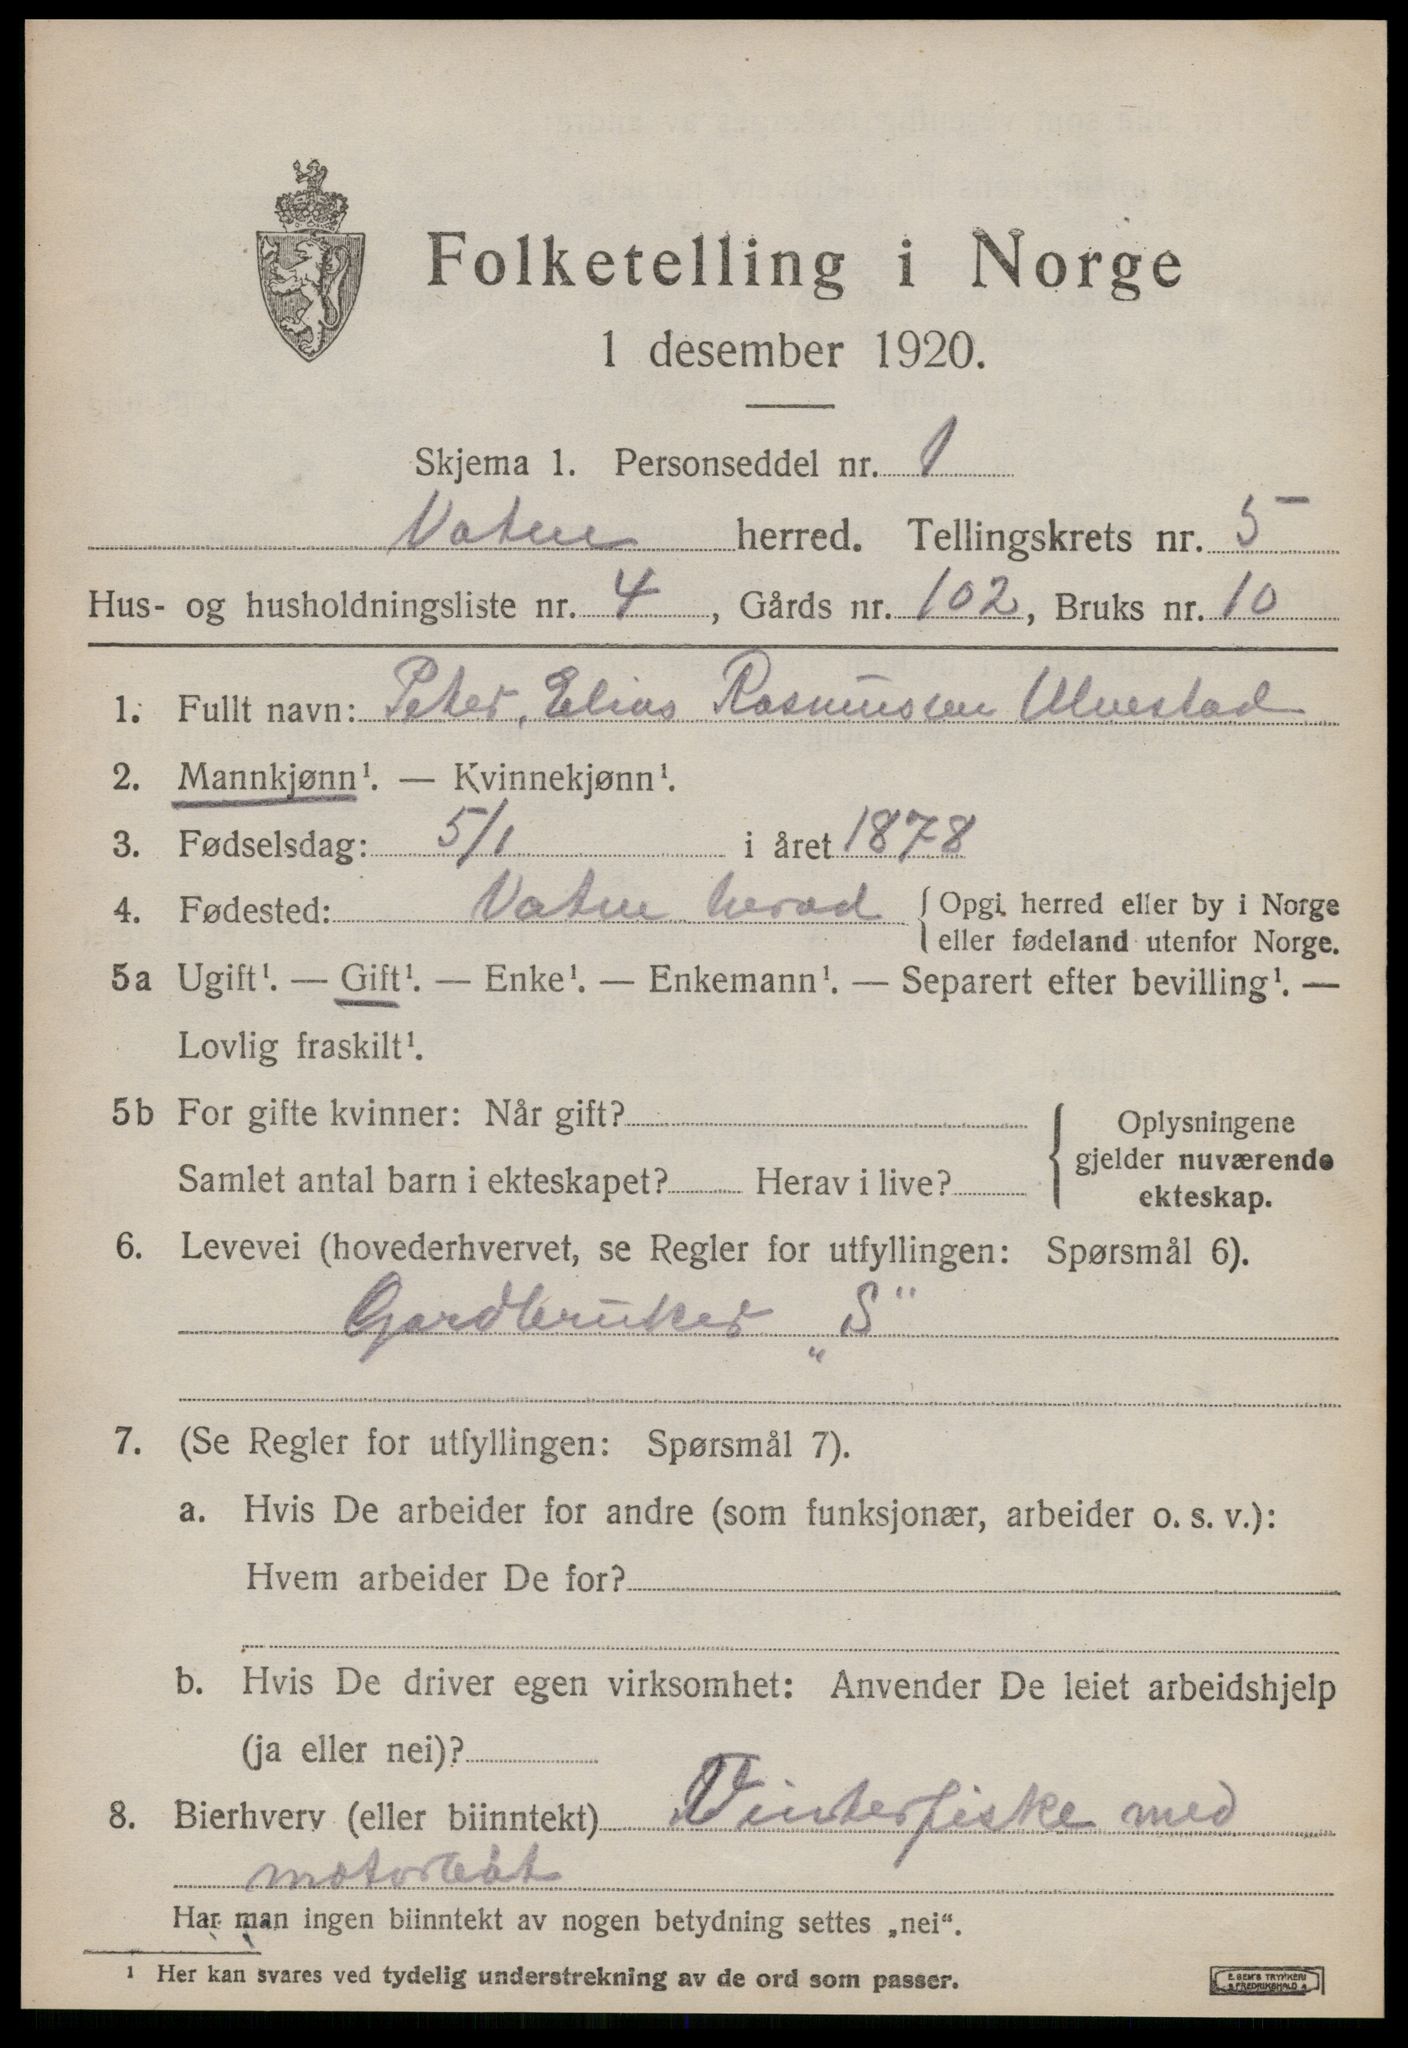 Folketelling i Norge
1 desember 1920.
Skjema 1. Personseddel nr. 1
Vatne herred. Tellingskrets nr. 5
Hus- og husholdningsliste nr. 4, Gårds nr. 102, Bruks nr. 10
1. Fullt navn: Peter, Elias Rasmussen Ulvestad
2. Mannkjønn¹. — Kvinnekjønn¹.
3. Fødselsdag: 5/1 i året 1878
4. Fødested: Vatne herad { Opgi herred eller by i Norge
eller fødeland utenfor Norge.
5a Ugift¹. — Gift¹. — Enke¹. — Enkemann¹. — Separert efter bevilling¹. —
Lovlig fraskilt¹.
5b For gifte kvinner: Når gift?
Samlet antal barn i ekteskapet? Herav i live?
{ Oplysningene
gjelder nuværende
ekteskap.
6. Levevei (hovederhvervet, se Regler for utfyllingen: Spørsmål 6).
Gardbruker „S“
7. (Se Regler for utfyllingen: Spørsmål 7).
a. Hvis De arbeider for andre (som funksjonær, arbeider o. s. v.):
Hvem arbeider De for?
b. Hvis De driver egen virksomhet: Anvender De leiet arbeidshjelp
(ja eller nei)?
8. Bierhverv (eller biinntekt) Vinterfiske med
motorbåt
Har man ingen biinntekt av nogen betydning settes „nei“.
¹ Her kan svares ved tydelig understrekning av de ord som passer.
E. SEM'S TRYKKERI
FREDRIKSHALD